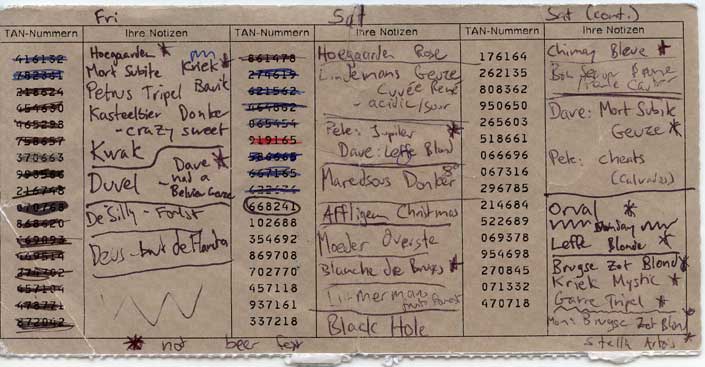 Fri
Sat
Sat (cont.)
TAN-Nummern
Ihre Notizen
TAN-Nummern
Ihre Notizen
TAN-Nummern
Ihre Notizen
416132
218824
454630
465298
758657
370663
216748
870768
868620
169093
274702
457104
478771
872042
Hoegaarden *
Mort Subite Kriek *
Petrus Tripel Bavik
Kasteelbier Donker
- crazy sweet
Kwak
Duvel - Dave * had a
De Silly - Forest
Deus - brut de Flandres
* not beer fest
861478
274619
621562
464802
065454
919165
667165
668241
102688
354692
869708
702770
457118
937161
337218
Hoegaarden Rose
Lindemans Geuze
Cuvée René
- acidic/sour
Pele: Jupiler *
Dave: Leffe Blond
Maredsous Donker 8°
Affligem Christmas
Moeder Overste
Blanche de Bruges *
Timmermans
Black Hole
176164
262135
808362
950650
265603
518661
066696
067316
296785
214684
522689
069378
954698
270845
071332
470718
Chimay Bleue *
Dave: Mort Subite
Geuze *
Pele: cheats
(Calvados)
Orval *
Sunday
Leffe Blonde *
Brugse Zot Blond *
Kriek Mystic *
Garre Tripel *
Mon: Brugse Zot Blond *
Stella Artois *